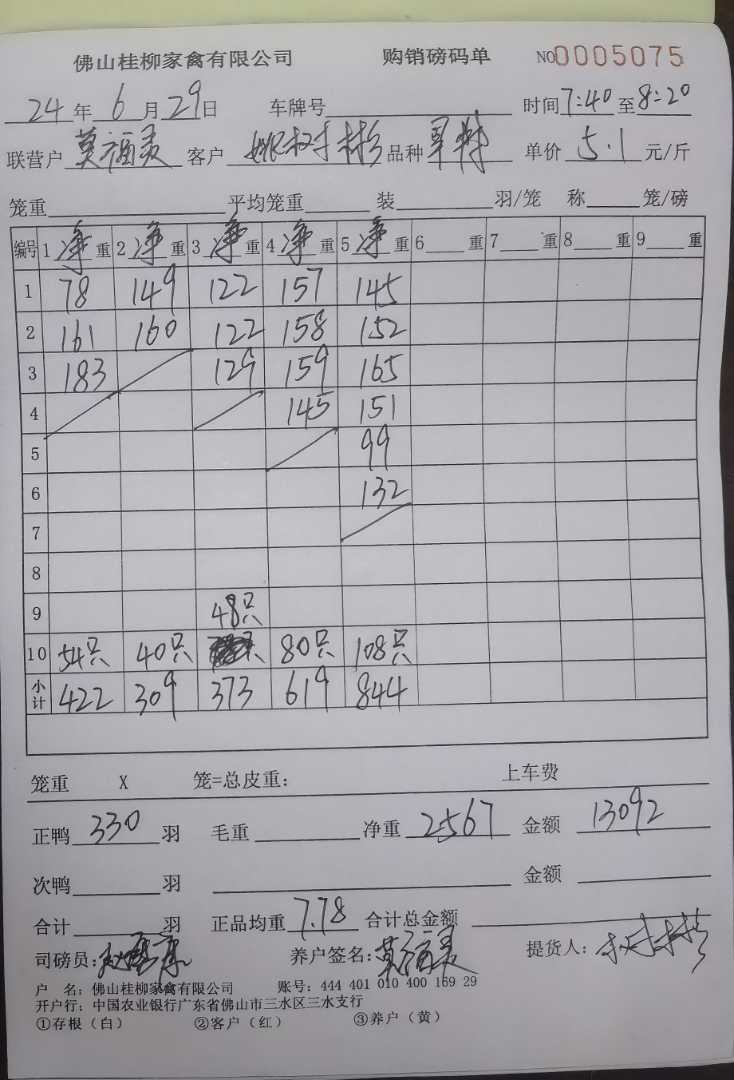 佛山桂柳家禽有限公司 购销磅码单 NO0005075
24年6月29日 车牌号 时间7:40至8:20
联营户 莫福灵 客户 姚树彬 品种 单价 5.1 元/斤
笼重 平均笼重 装 羽/笼 称 笼/磅
编号 1净重 2净重 3净重 4净重 5净重 6 重 7 重 8 重 9 重
1 78 149 122 157 145
2 161 160 122 158 152
3 183 129 159 165
4 145 151
5 99
6 132
7
8
9 48只
10 54只 40只 80只 108只
小计 422 309 373 619 844
笼重 X 笼=总皮重: 上车费
正鸭 330 羽 毛重 净重 2567 金额 13092
次鸭 羽 金额
合计 羽 正品均重 7.78 合计总金额
司磅员: 养户签名: 莫福灵 提货人:
户 名: 佛山桂柳家禽有限公司 账号: 444 401 010 400 169 29
开户行: 中国农业银行广东省佛山市三水区三水支行
①存根(白) ②客户(红) ③养户(黄)